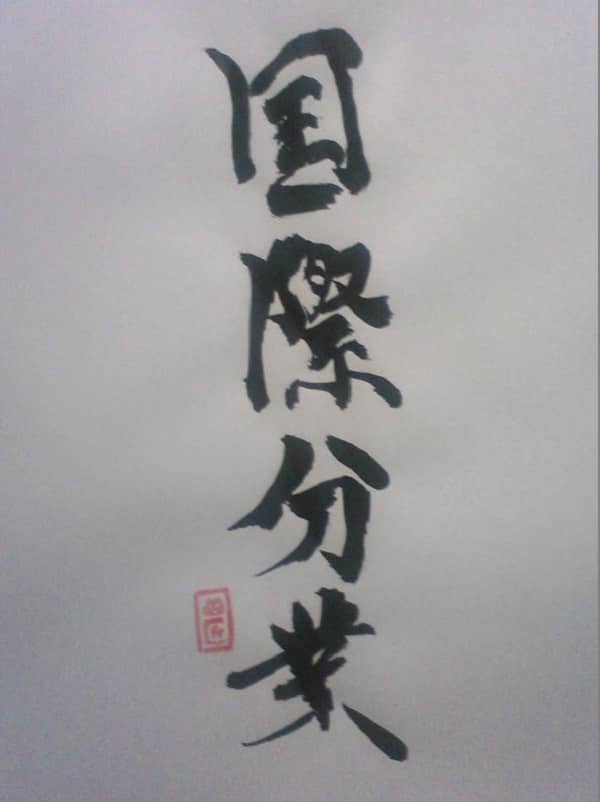 国際分業